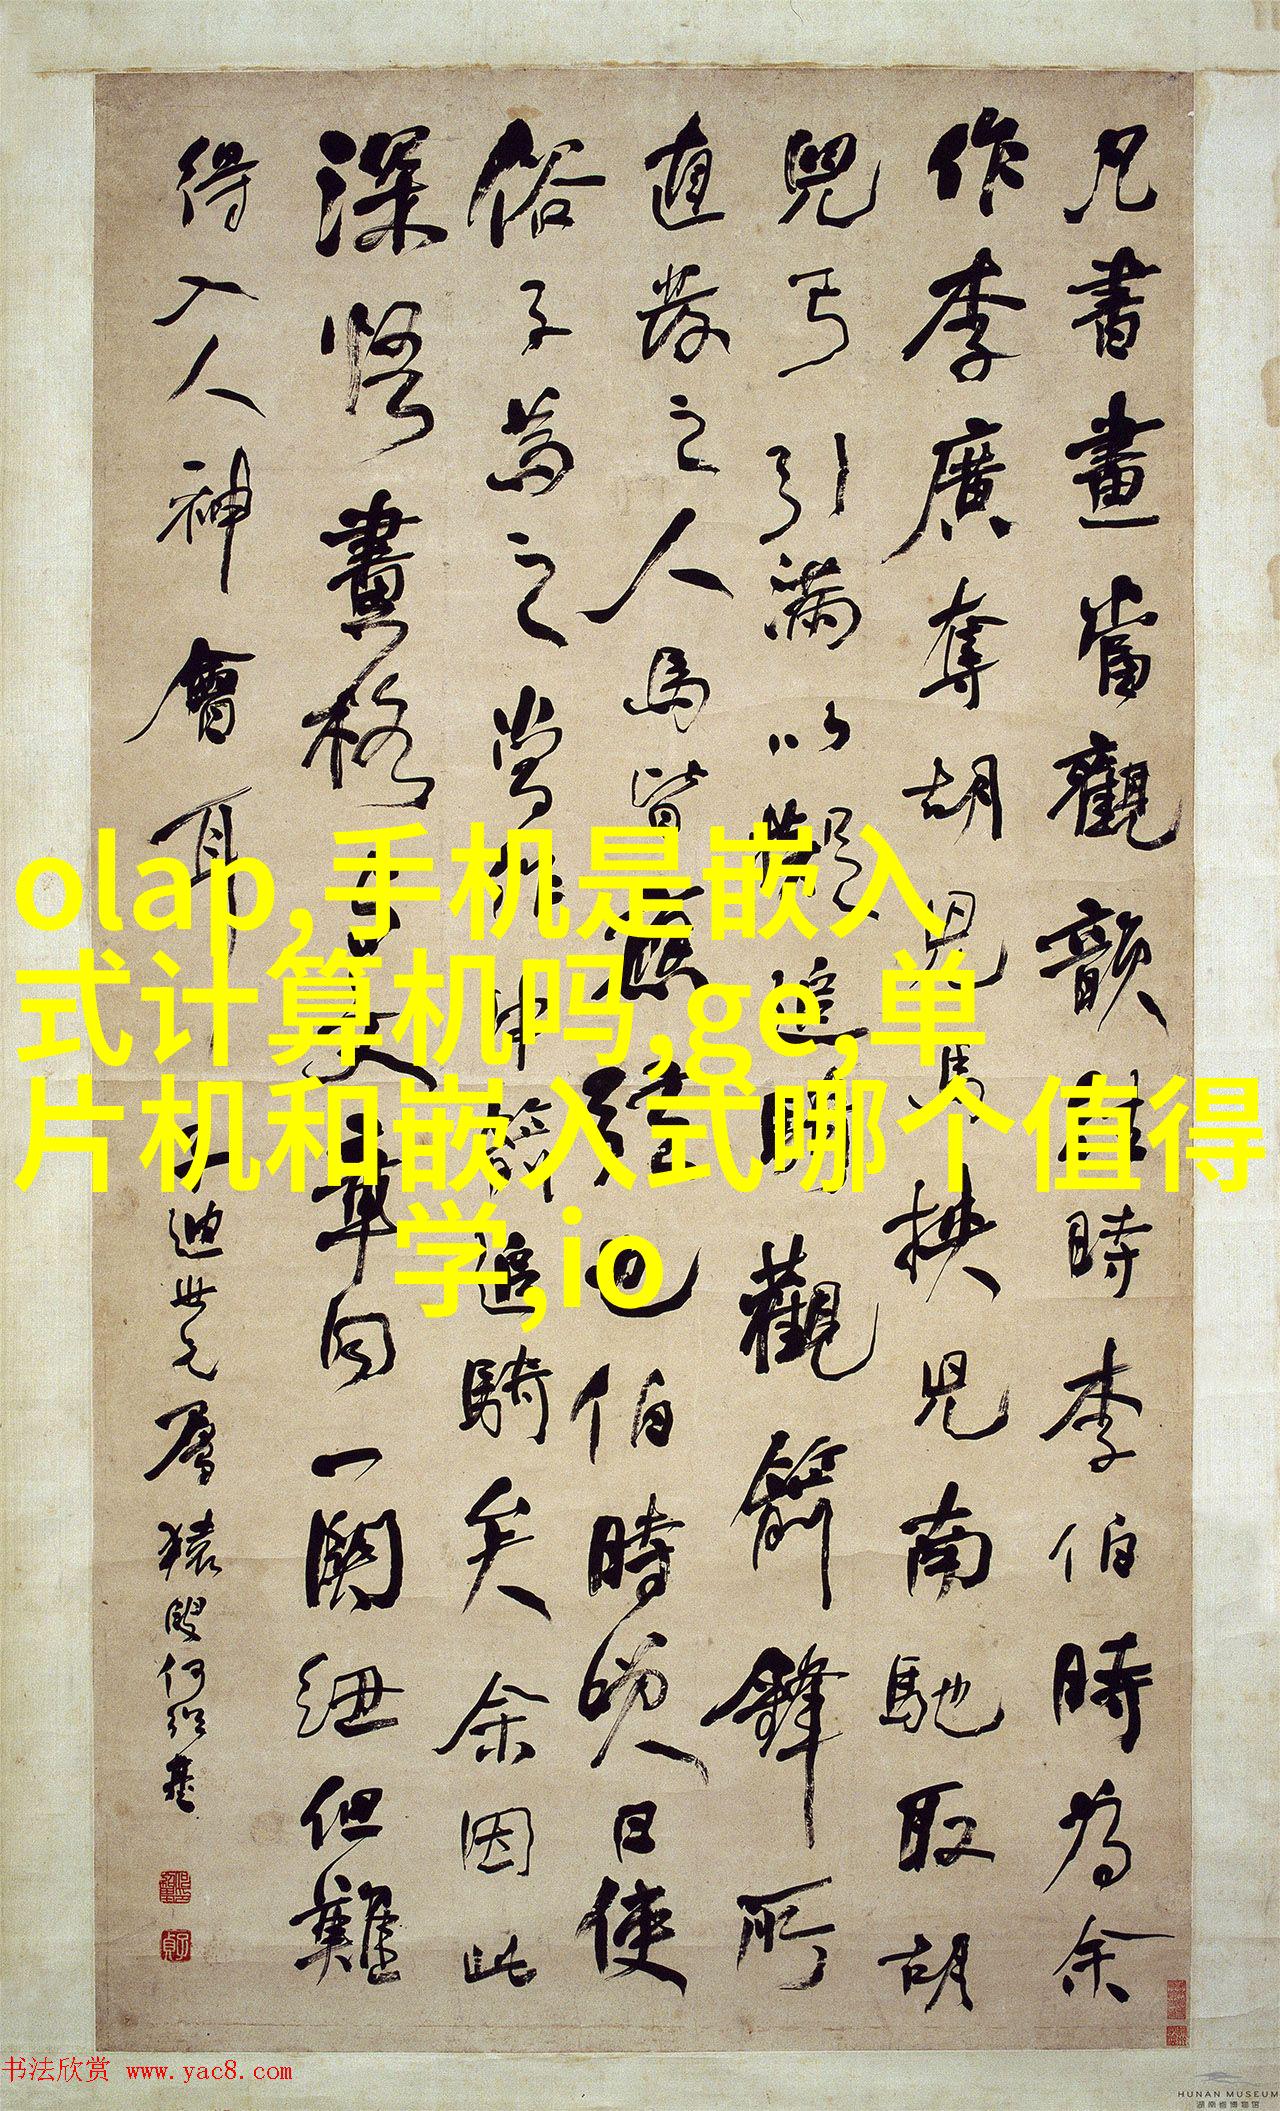 凡書畫當觀韻往時李伯時為余
作李廣奪胡兒馬挾兒南馳取胡
兒弓引滿以擬追騎觀箭鋒所
直發之人馬皆應弦也伯時笑曰使
俗子為之當作中箭追騎矣余因此
深悟畫格與文章同一關紐但難
得入人神會耳
迪世兄屬 猨叟何紹基
olap,手机是嵌入
式计算机吗,ge,单
片机和嵌入式哪个值得
学,io
书法欣赏 www.yac8.com
HUNAN MUSEUM
湖南省博物館